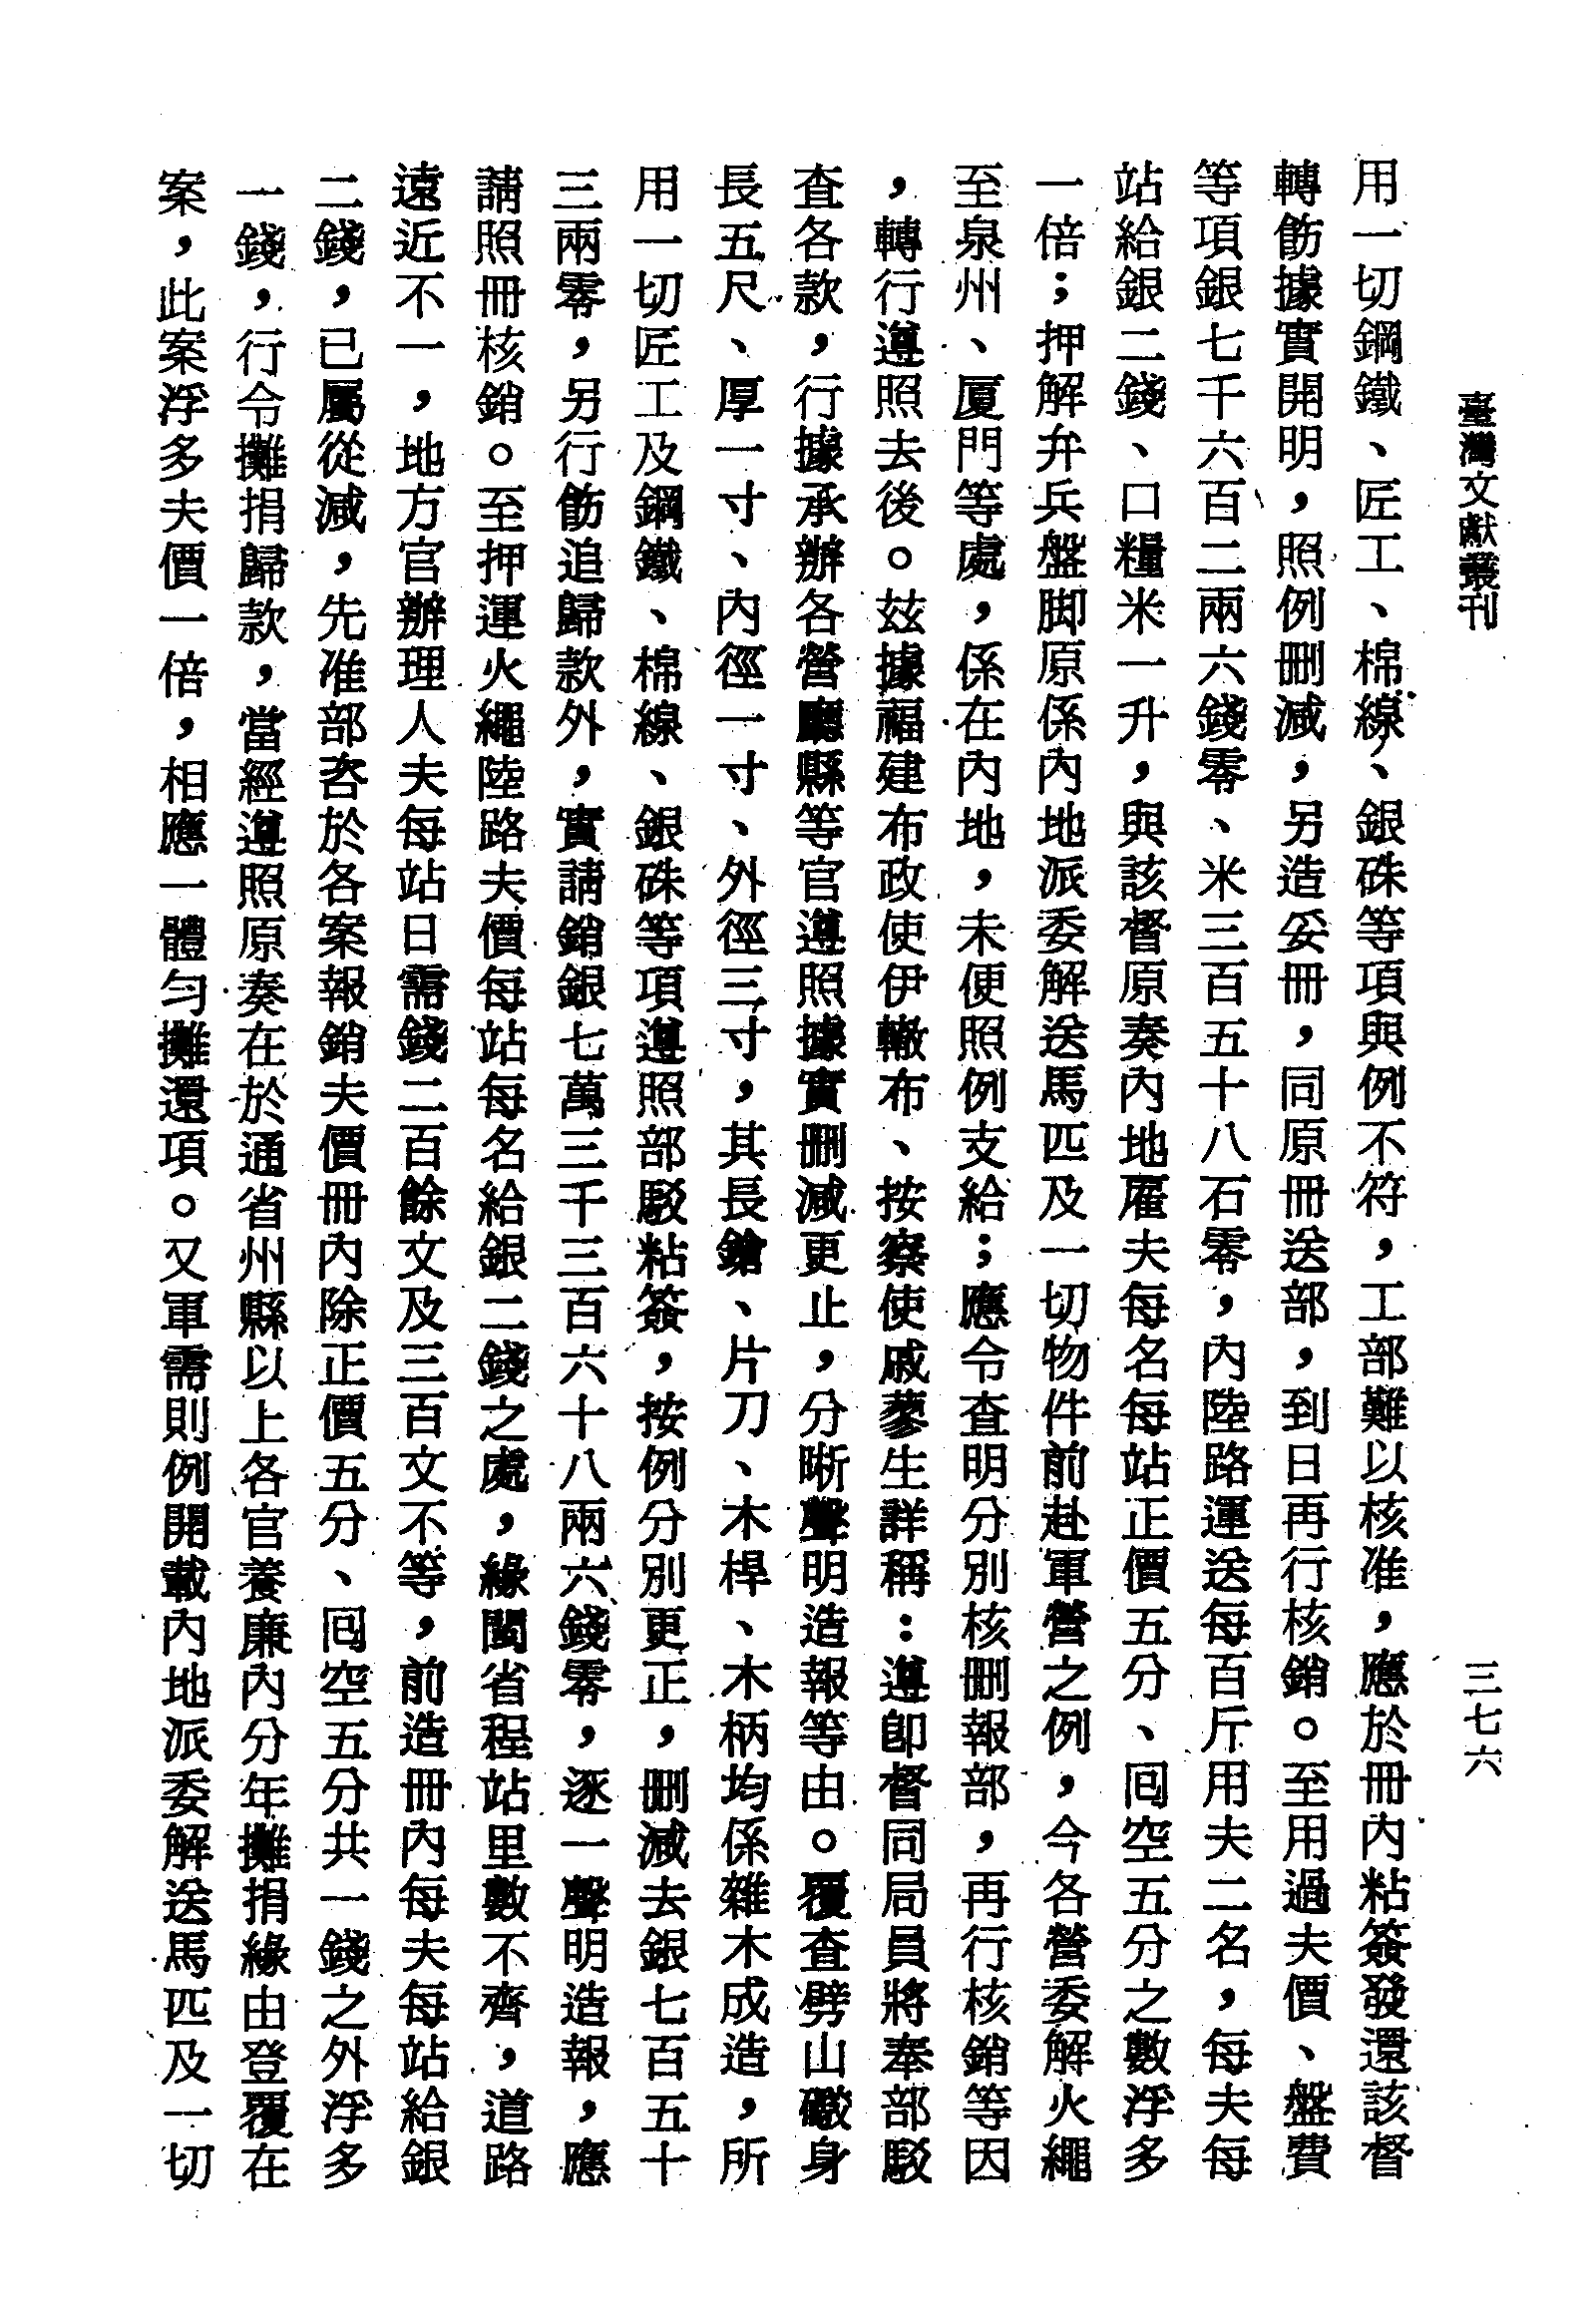 臺灣文獻叢刊
三七六
用一切鋼鐵、匠工、棉線、銀硃等項與例不符，工部難以核准，應於冊內粘簽發還該督
轉飭據實開明，照例刪減，另造妥冊，同原冊送部，到日再行核銷。至用過夫價、盤費
等項銀七千六百二兩六錢零、米三百五十八石零，內陸路運送每百斤用夫二名，每夫每
站給銀二錢、口糧米一升，與該督原奏內地雇夫每名每站正價五分、囘空五分之數浮多
一倍；押解弁兵盤脚原係內地派委解送馬匹及一切物件前赴軍營之例，今各營委解火繩
至泉州、厦門等處，係在內地，未便照例支給；應令查明分別核刪報部，再行核銷等因
，轉行遵照去後。玆據福建布政使伊轍布、按察使戚蓼生詳稱：遵卽督同局員將奉部駁
查各款，行據承辦各營廳縣等官遵照據實刪減更止，分晰聲明造報等由。覆查劈山礮身
長五尺、厚一寸、內徑一寸、外徑三寸，其長鎗、片刀、木桿、木柄均係雜木成造，所
用一切匠工及鋼鐵、棉線、銀硃等項遵照部駁粘簽，按例分別更正，刪減去銀七百五十
三兩零，另行飭追歸款外，實請銷銀七萬三千三百六十八兩六錢零，逐一聲明造報，應
請照冊核銷。至押運火繩陸路夫價每站每名給銀二錢之處，緣閩省程站里數不齊，道路
遠近不一，地方官辦理人夫每站日需錢二百餘文及三百文不等，前造冊內每夫每站給銀
二錢，已屬從減，先准部咨於各案報銷夫價冊內除正價五分、囘空五分共一錢之外浮多
一錢，行令攤捐歸款，當經遵照原奏在於通省州縣以上各官養廉內分年攤捐緣由登覆在
案，此案浮多夫價一倍，相應一體勻攤還項。又軍需則例開載內地派委解送馬匹及一切